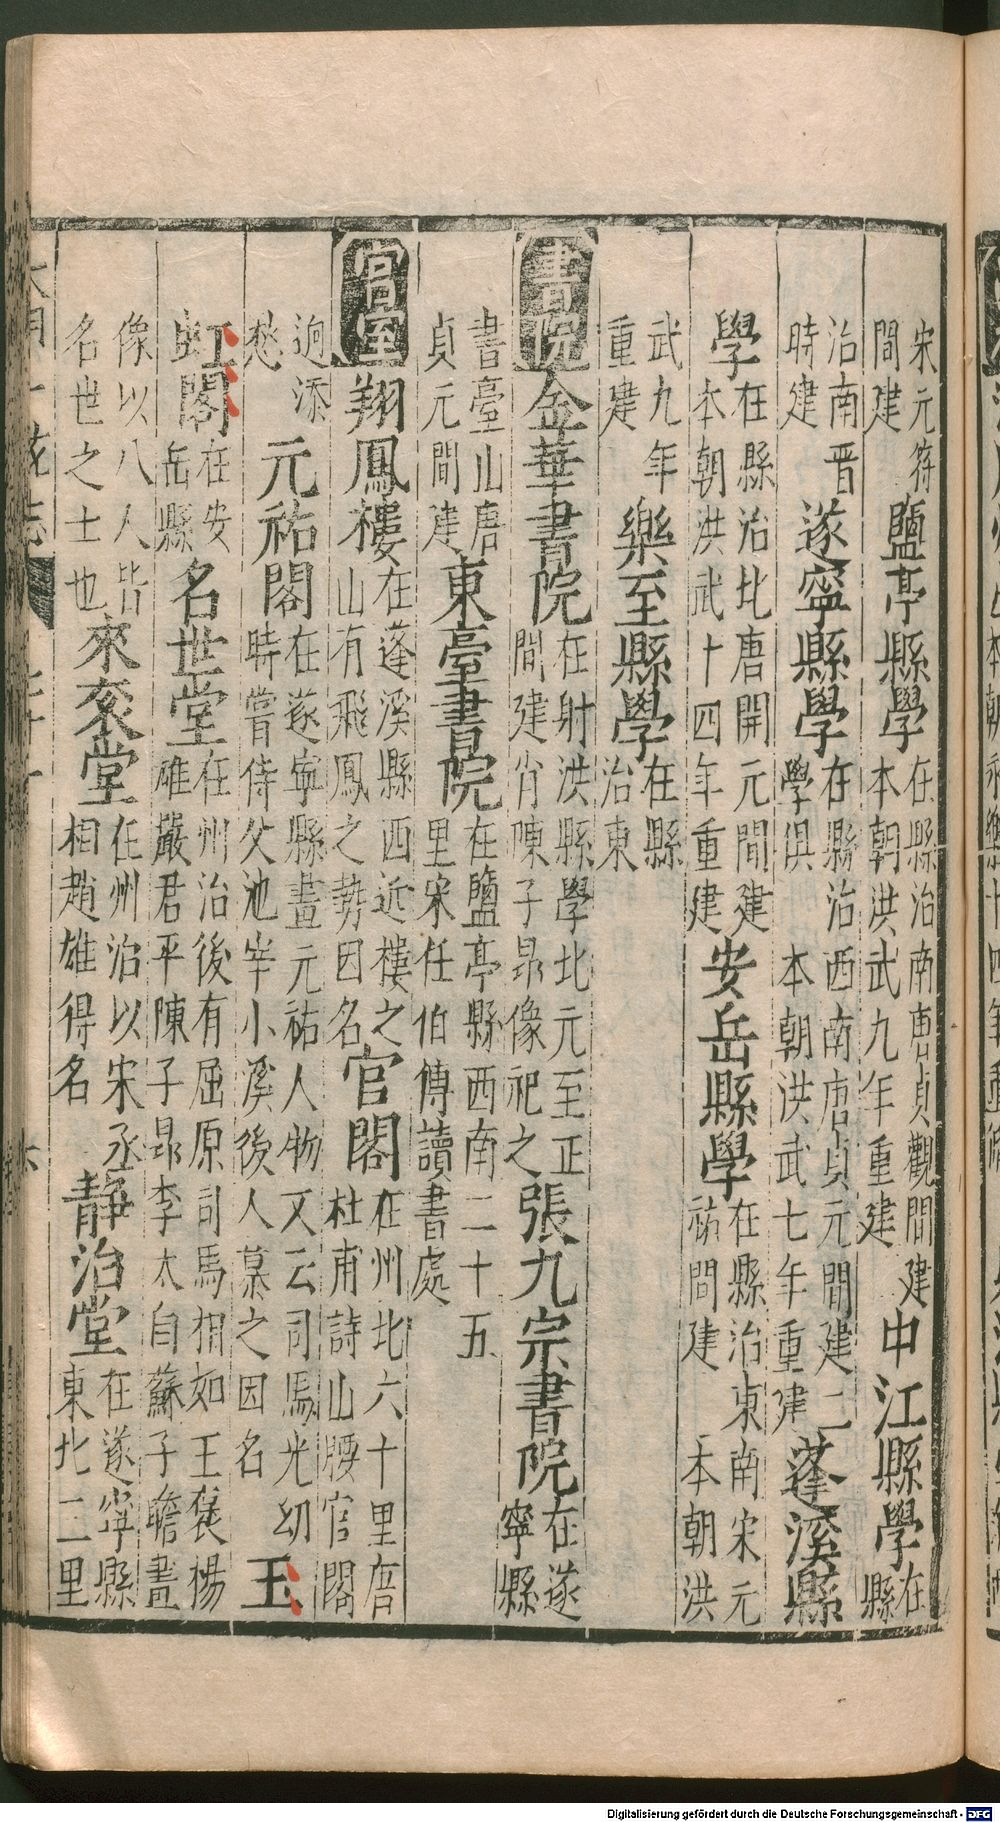 宋元符間建鹽亭縣學在縣治南唐貞觀間建本朝洪武九年重建中江縣學在縣
治南晉時建遂寧縣學在縣治西南唐貞元間建二學俱本朝洪武七年重建蓬溪縣
學在縣治北唐開元間建本朝洪武十四年重建安岳縣學在縣治東南宋元祐間建本朝洪
武九年重建樂至縣學在縣治東
書院金華書院在射洪縣學北元至正間建肖陳子昻像祀之張九宗書院在遂寧縣
書臺山唐貞元間建東臺書院在鹽亭縣西南二十五里宋任伯傳讀書處
宮室翔鳳樓在蓬溪縣西近樓之山有飛鳳之勢因名官閣在州北六十里唐杜甫詩山腰官閣
逈添愁元祐閣在遂寧縣畫元祐人物又云司馬光幼時嘗侍父池宰小溪後人慕之因名玉
虹閣在安岳縣名世堂在州治後有屈原司馬相如王襃楊雄嚴君平陳子昻李太白蘇子瞻畫
像以八人皆名世之士也來衮堂在州治以宋丞相趙雄得名靜治堂在遂寧縣東北二里
Digitalisierung gefördert durch die Deutsche Forschungsgemeinschaft - DFG